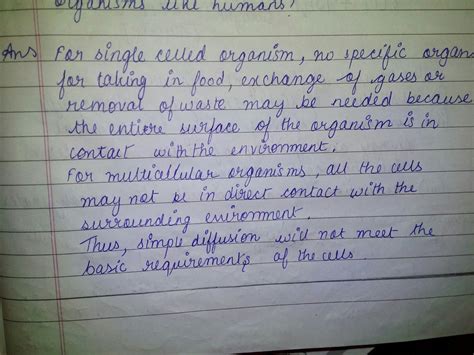 organisms like humans?
Ans For single celled organism, no specific organ
for taking in food, exchange of gases or
removal of waste may be needed because
the entiore surface of the organism is in
contact with the environment.
For multicallular organisms, all the cells
may not be in direct contact with the
surrounding environment.
Thus, simple diffusion will not meet the
basic requirements of the cells.